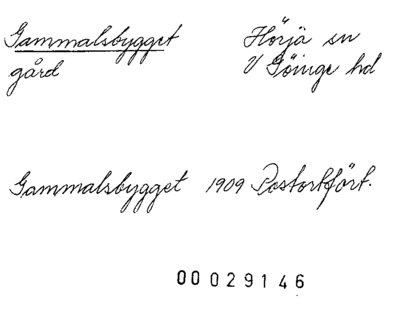 Gammalsbygget Hörjä sn
gård V Göinge hd
Gammalsbygget 1909 Postortfört.
00029146